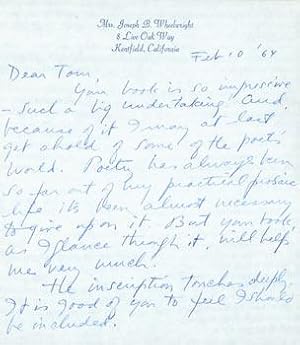 Mrs. Joseph B. Wheelwright
8 Live Oak Way
Kentfield, California
Feb 10 '64
Dear Tom,
Your book is so impressive
- such a big undertaking. And
because of it I may at last
get ahold of some of the poets'
world. Poetry has always been
so far out of my practical prosaic
life it's been almost necessary
to give up on it. But your book,
as I glance through it, will help
me very much.
The inscription touches deeply.
It is good of you to feel I should
be included.